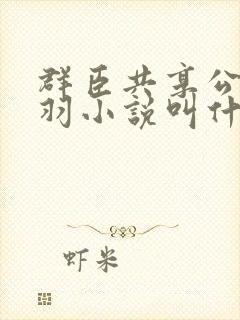 群臣共享公
羽小說叫什
虾米